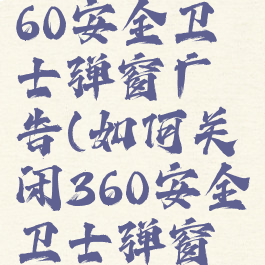 60安全卫
士弹窗广
告(如何关
闭360安全
卫士弹窗